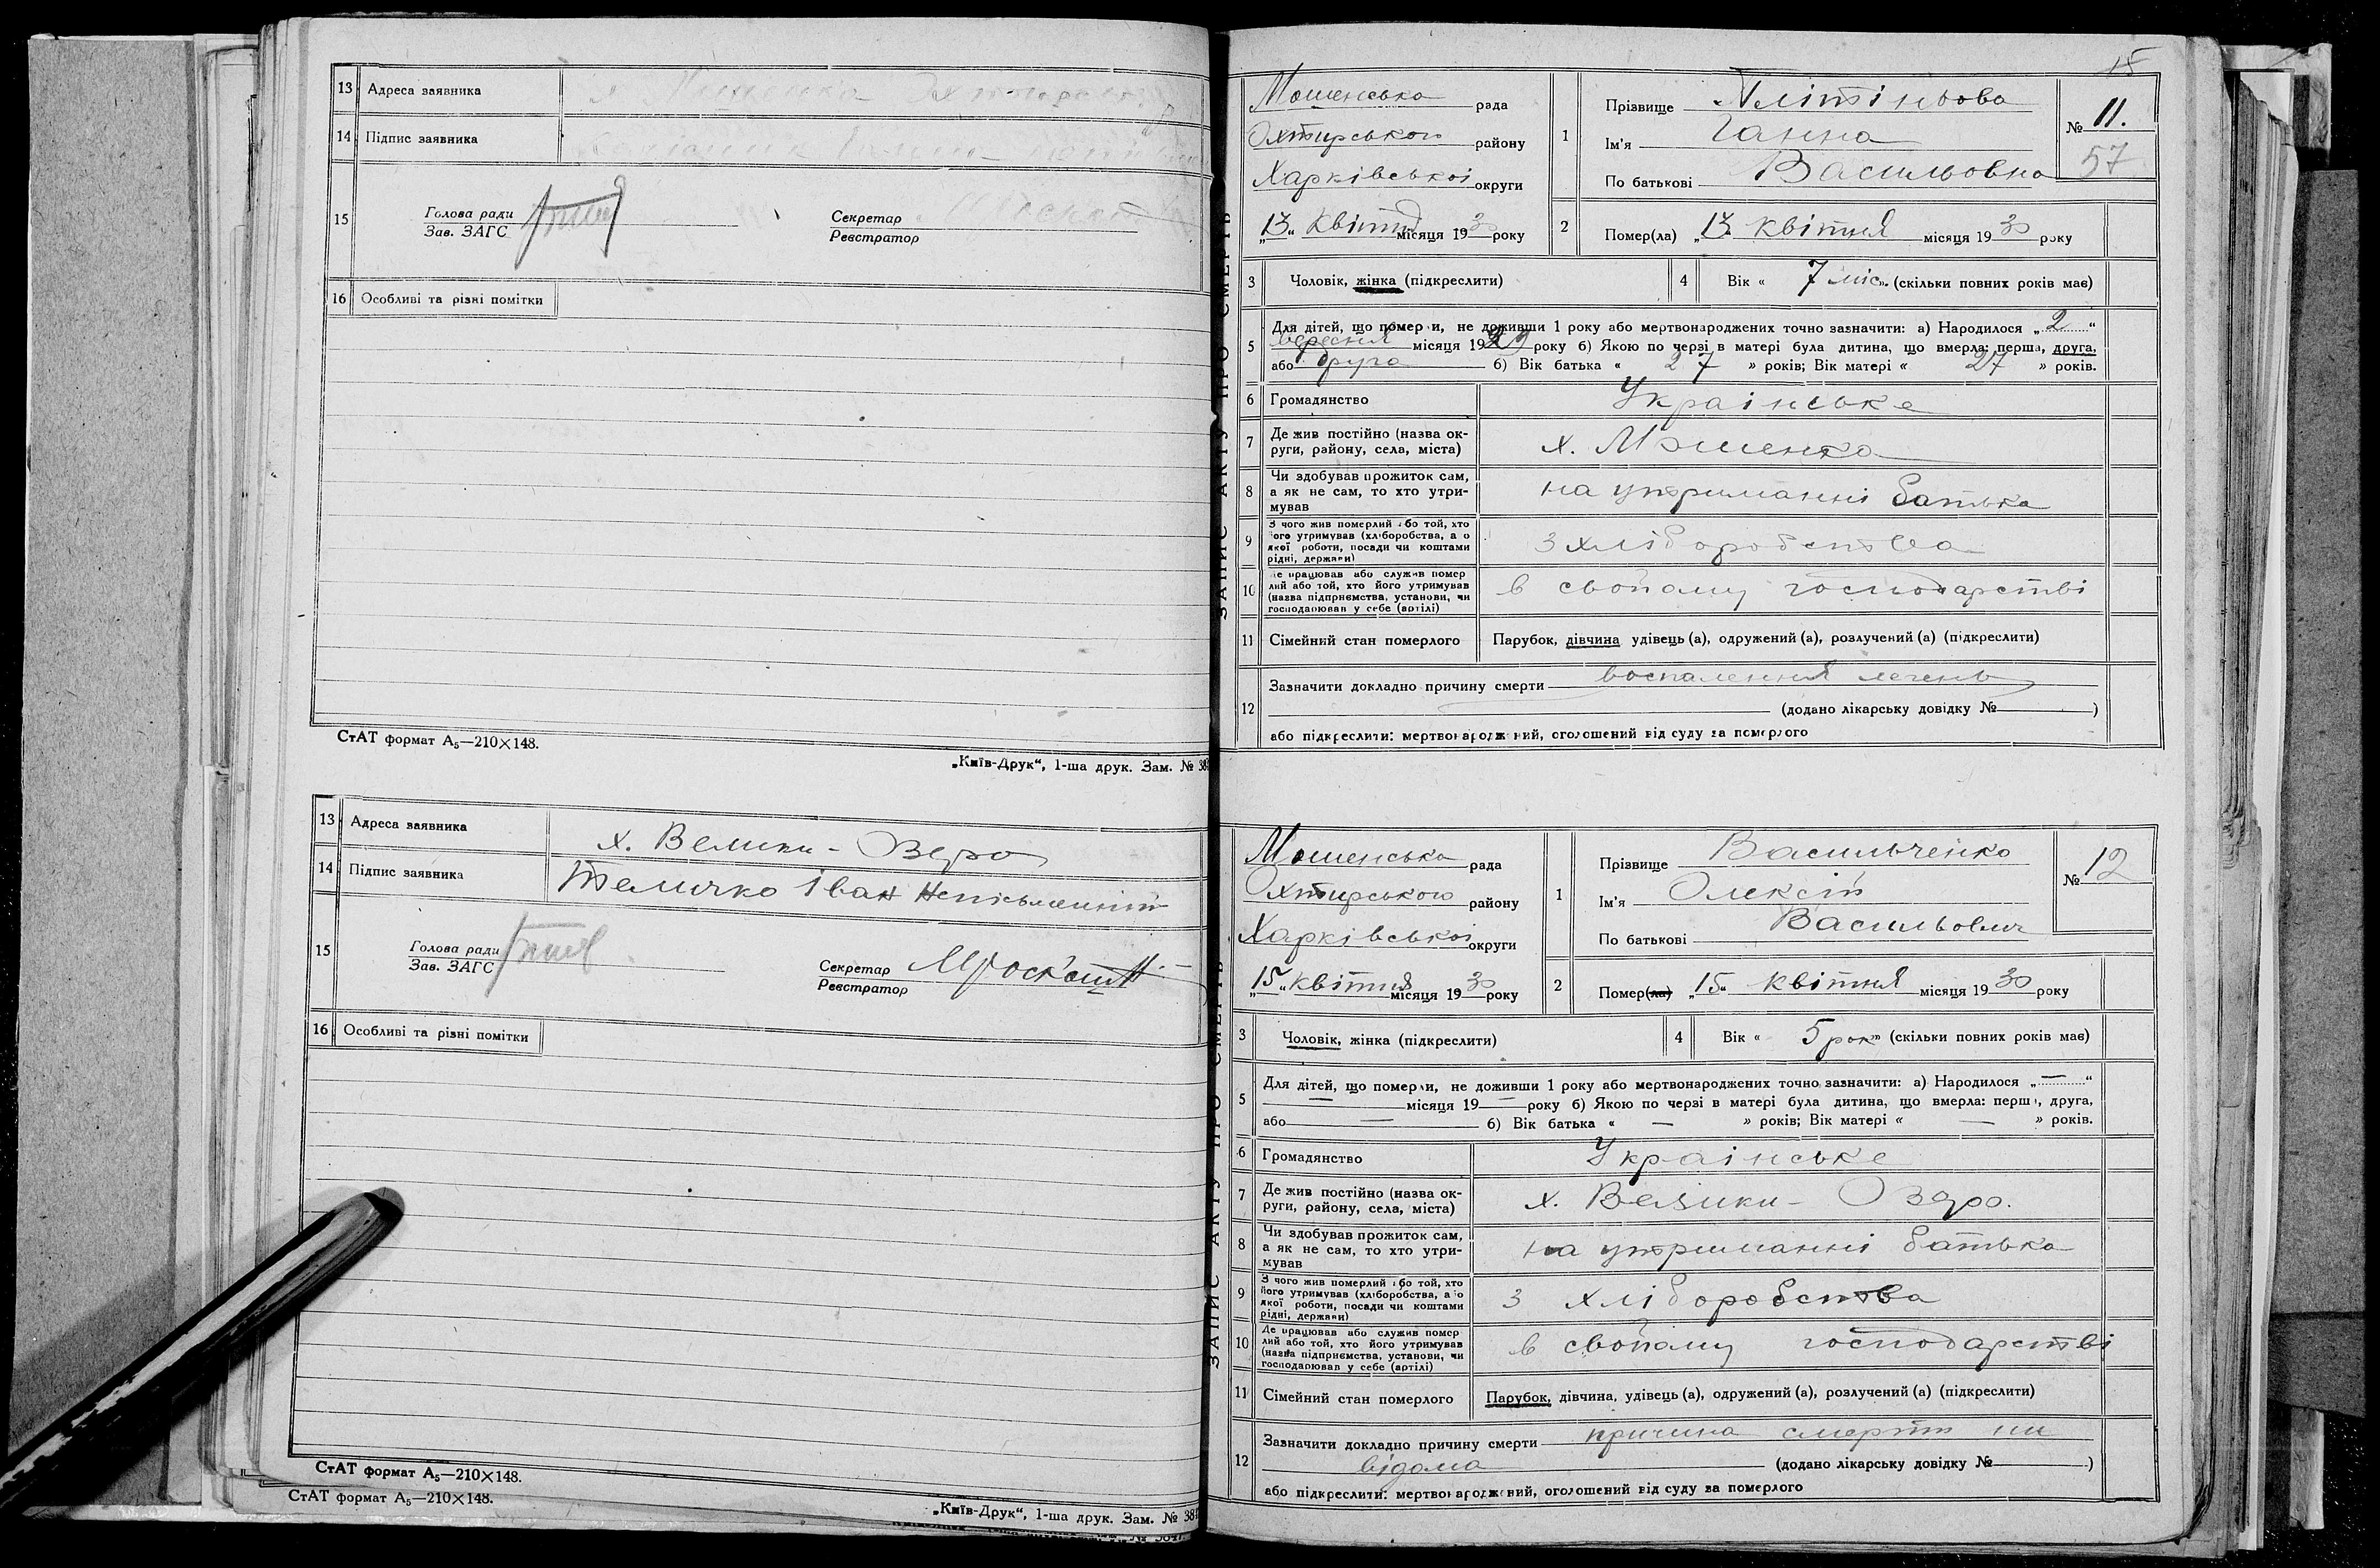 13 Адреса заявника
14 Підпис заявника
15 Голова ради
Зав. ЗАГС
Секретар
Реєстратор
16 Особливі та різні помітки
СтАТ формат А₅—210×148.
„Київ-Друк“, 1-ша друк. Зам. № 38
13 Адреса заявника х. Велики-Озеро
14 Підпис заявника Теличко Іван Неписьменний
15 Голова ради
Зав. ЗАГС
Секретар
Реєстратор
16 Особливі та різні помітки
СтАТ формат А₅—210×148.
СтАТ формат А₅—210×148.
„Київ-Друк“, 1-ша друк. Зам. № 38
15
ЗАПИС АКТУ ПРО СМЕРТЬ
Мошенська рада
Охтирського району
Харківської округи
„13“ Квітня місяця 1930 року
1 Прізвище
Ім'я Ганна
По батькові Васильовна
№ 11.
57
2 Помер(ла) „13 Квітня місяця 1930 року
3 Чоловік, жінка (підкреслити)
4 Вік « 7 міс». (скільки повних років має)
5 Для дітей, що померли, не доживши 1 року або мертвонароджених точно зазначити: а) Народилося „2“
вересня місяця 1929 року б) Якою по черзі в матері була дитина, що вмерла: перша, друга,
або друга б) Вік батька « 27 » років; Вік матері « 27 » років.
6 Громадянство Українське
7 Де жив постійно (назва ок-
руги, району, села, міста) х. Мошенка
8 Чи здобував прожиток сам,
а як не сам, то хто утри-
мував на утриманні батька
9 З чого жив померлий або той, хто
його утримував (хліборобства, а о
якої роботи, посади чи коштами
рідні, держави) З хліборобства
10 Де працював або служив помер
лий або той, хто його утримував
(назва підприємства, установи, чи
господарював у себе (артілі) в свойому господарстві
11 Сімейний стан померлого Парубок, дівчина удівець (а), одружений (а), розлучений (а) (підкреслити)
12 Зазначити докладно причину смерти воспалення легень
(додано лікарську довідку № )
або підкреслити: мертвонароджений, оголошений від суду за померлого
ЗАПИС АКТУ ПРО СМЕРТЬ
Мошенська рада
Охтирського району
Харківської округи
„15“ Квітня місяця 1930 року
1 Прізвище Васильченко
Ім'я Олексій
По батькові Васильович
№ 12
2 Помер(ла) „15“ Квітня місяця 1930 року
3 Чоловік, жінка (підкреслити)
4 Вік « 5 рок» (скільки повних років має)
5 Для дітей, що померли, не доживши 1 року або мертвонароджених точно зазначити: а) Народилося „—“
— місяця 19— року б) Якою по черзі в матері була дитина, що вмерла: перша, друга,
або — б) Вік батька « — » років; Вік матері « — » років.
6 Громадянство Українське
7 Де жив постійно (назва ок-
руги, району, села, міста) х. Велики-Озеро.
8 Чи здобував прожиток сам,
а як не сам, то хто утри-
мував на утриманні батька
9 З чого жив померлий або той, хто
його утримував (хліборобства, або
якої роботи, посади чи коштами
рідні, держави) З хліборобства
10 Де працював або служив помер
лий або той, хто його утримував
(назва підприємства, установи, чи
господарював у себе (артілі) в свойому господарстві
11 Сімейний стан померлого Парубок, дівчина, удівець (а), одружений (а), розлучений (а) (підкреслити)
12 Зазначити докладно причину смерти причина смерти ни
відома (додано лікарську довідку № )
або підкреслити: мертвонароджений, оголошений від суду за померлого